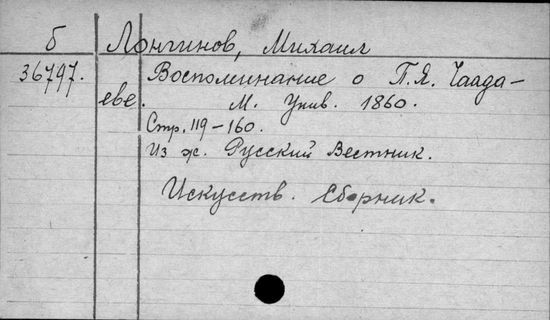 б Лонгинов, Михаил
36797. Воспоминание о П.Я. Чаада-
еве. М. Унив. 1860.
Стр. 119-160.
Из ж. Русский Вестник.
Искусств. Сборник.